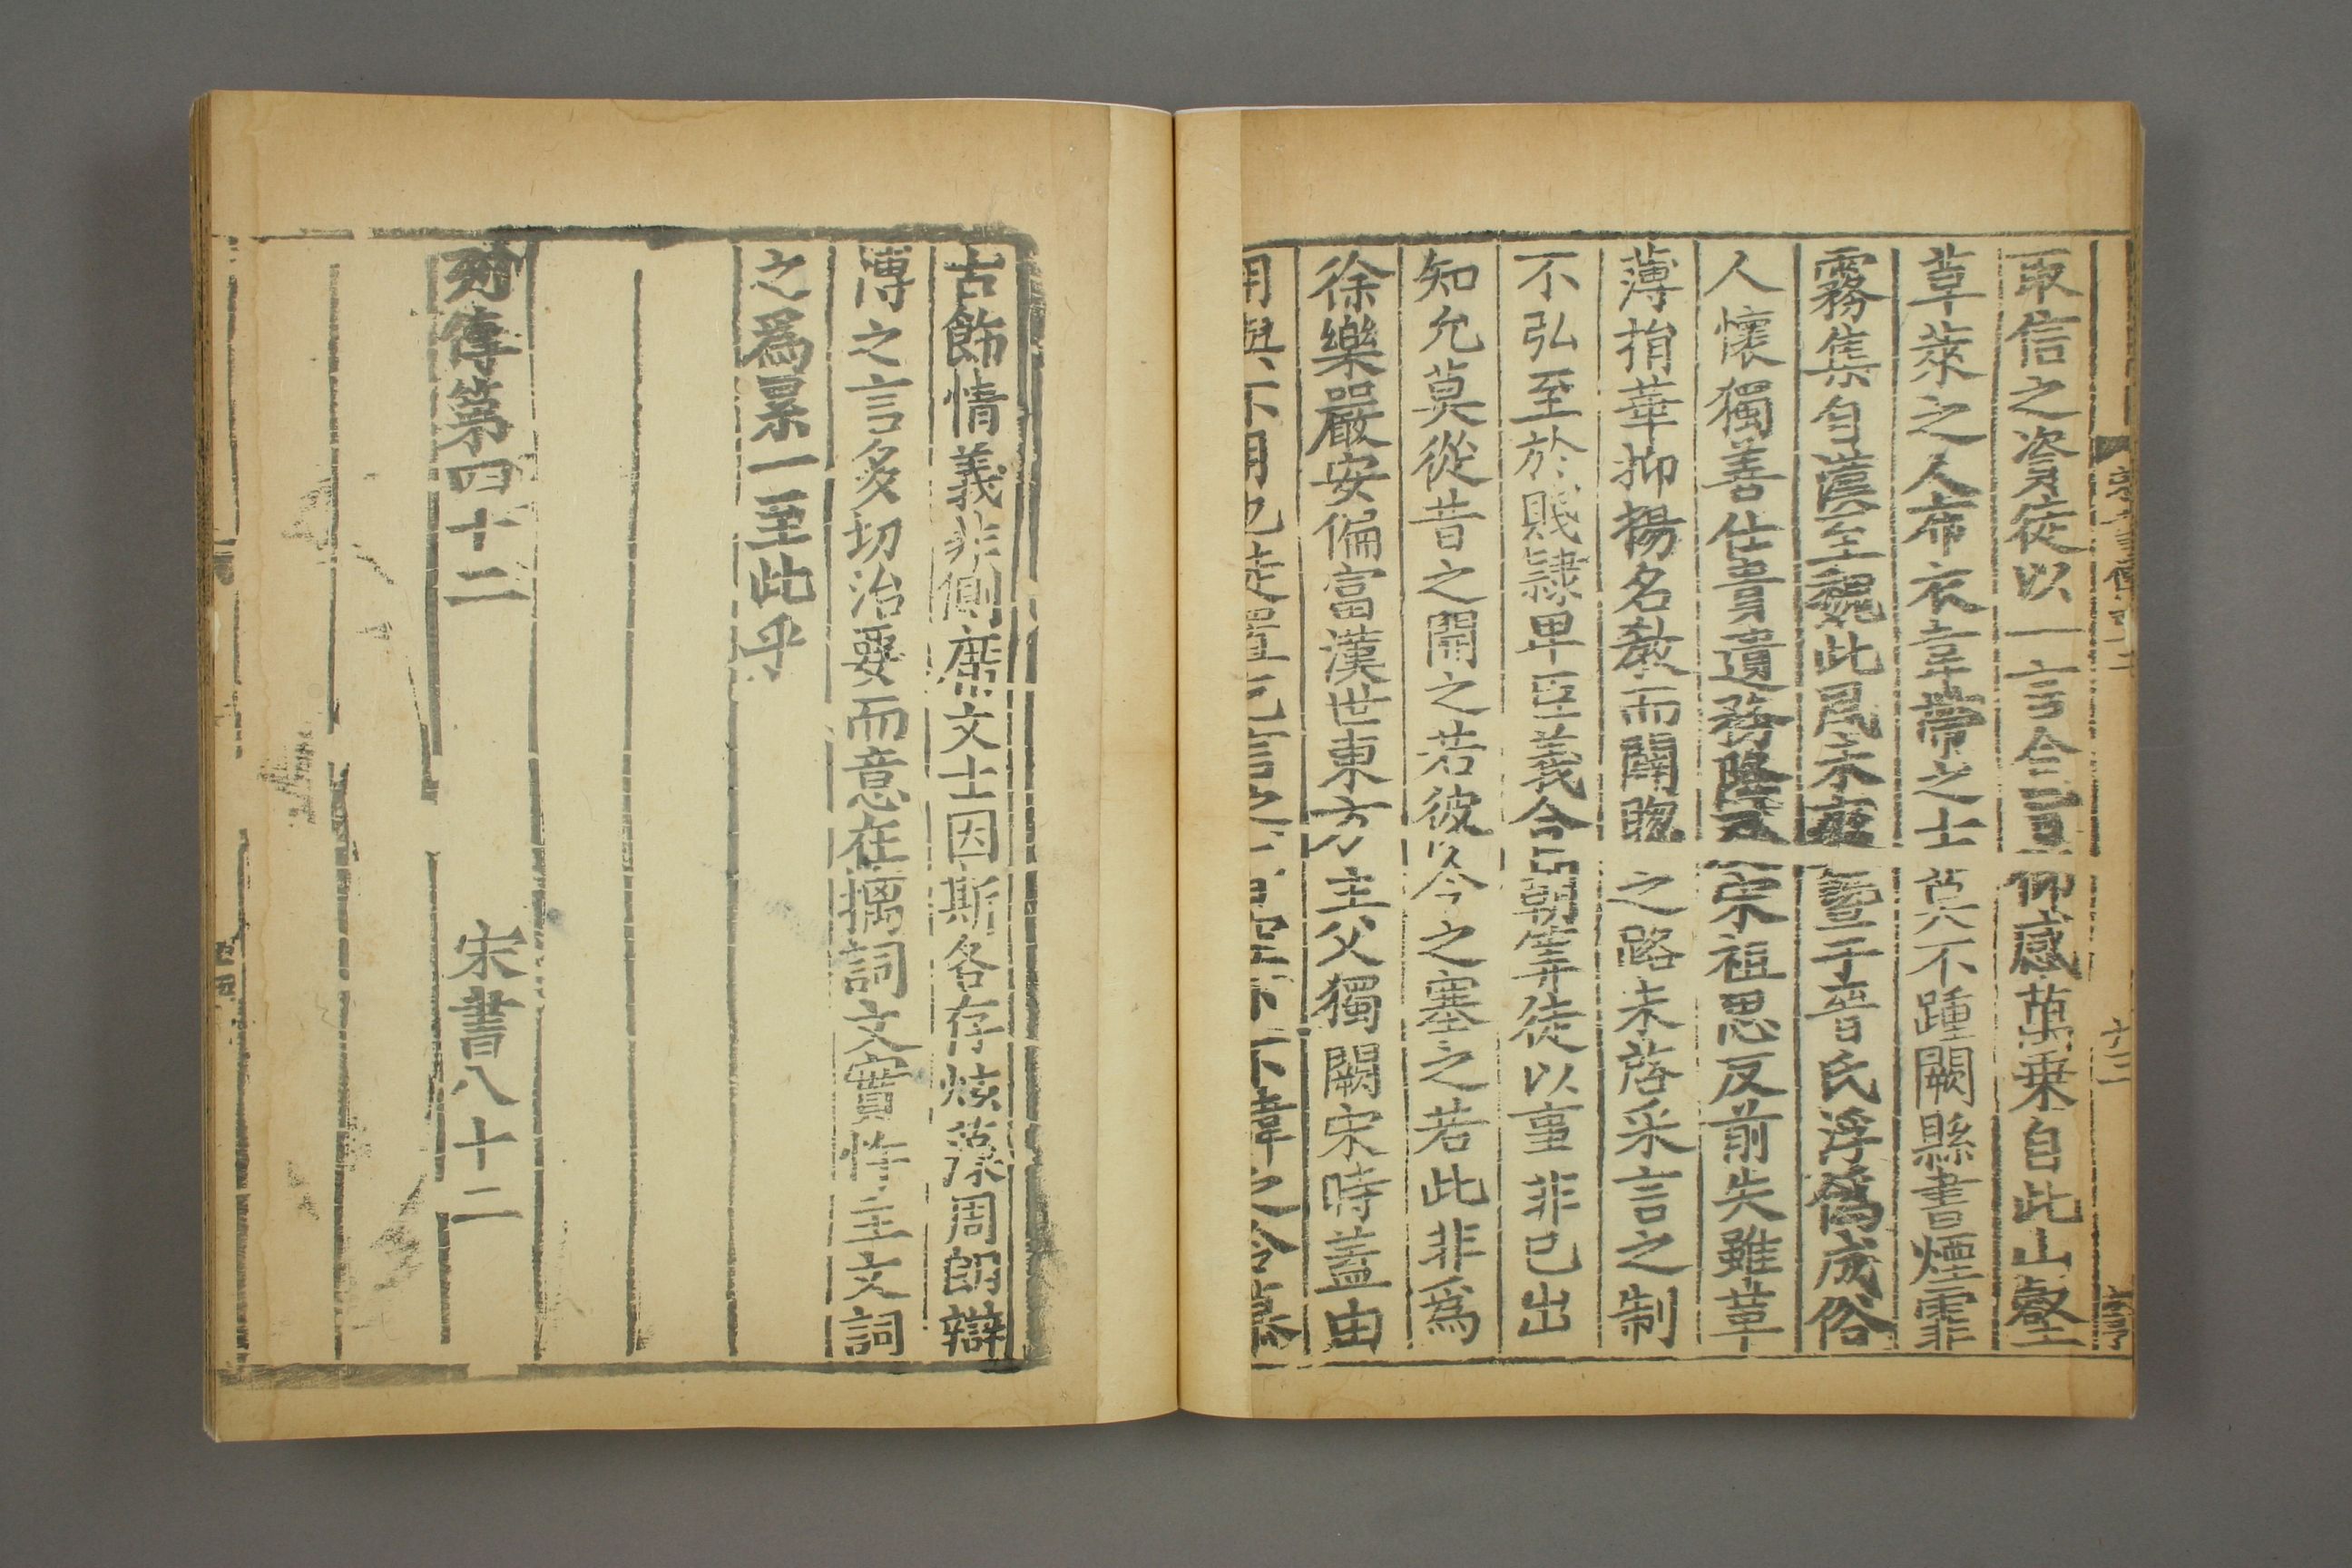 宋書傳四十二 十三
取信之資徒以一言合旨仰感萬乗自此山壑
草萊之人布衣韋帶之士莫不踵闕縣書煙霏
霧集自漢至魏此風未爽曁于晉氏浮僞成俗
人懷獨善仕貴遺務降及宋祖思反前失雖革
薄捐華抑揚名敎而闢聰之路未啓采言之制
不弘至於賤隷卑臣義合朝筭徒以事非已出
知允莫從昔之開之若彼今之塞之若此非爲
徐樂嚴安偏富漢世東方主父獨闕宋時蓋由
用與不用也徒置乞言之 空下不諱之令慕
古飾情義非側席文士因斯各存炫藻周朗辯
博之言多切治要而意在摛詞文實忤主文詞
之爲累一至此乎
列傳第四十二 宋書八十二